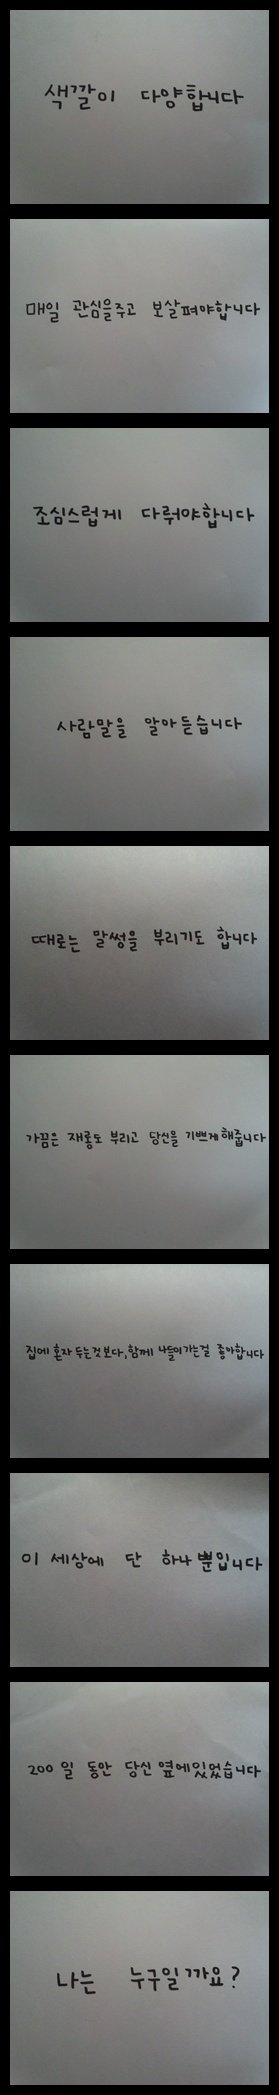 색깔이 다양합니다
매일 관심을주고 보살펴야합니다
조심스럽게 다뤄야합니다
사람말을 알아듣습니다
때로는 말썽을 부리기도 합니다
가끔은 재롱도 부리고 당신을 기쁘게해줍니다
집에 혼자 두는것보다, 함께 나들이가는걸 좋아합니다
이 세상에 단 하나뿐입니다
200일 동안 당신 옆에있었습니다
나는 누구일까요?